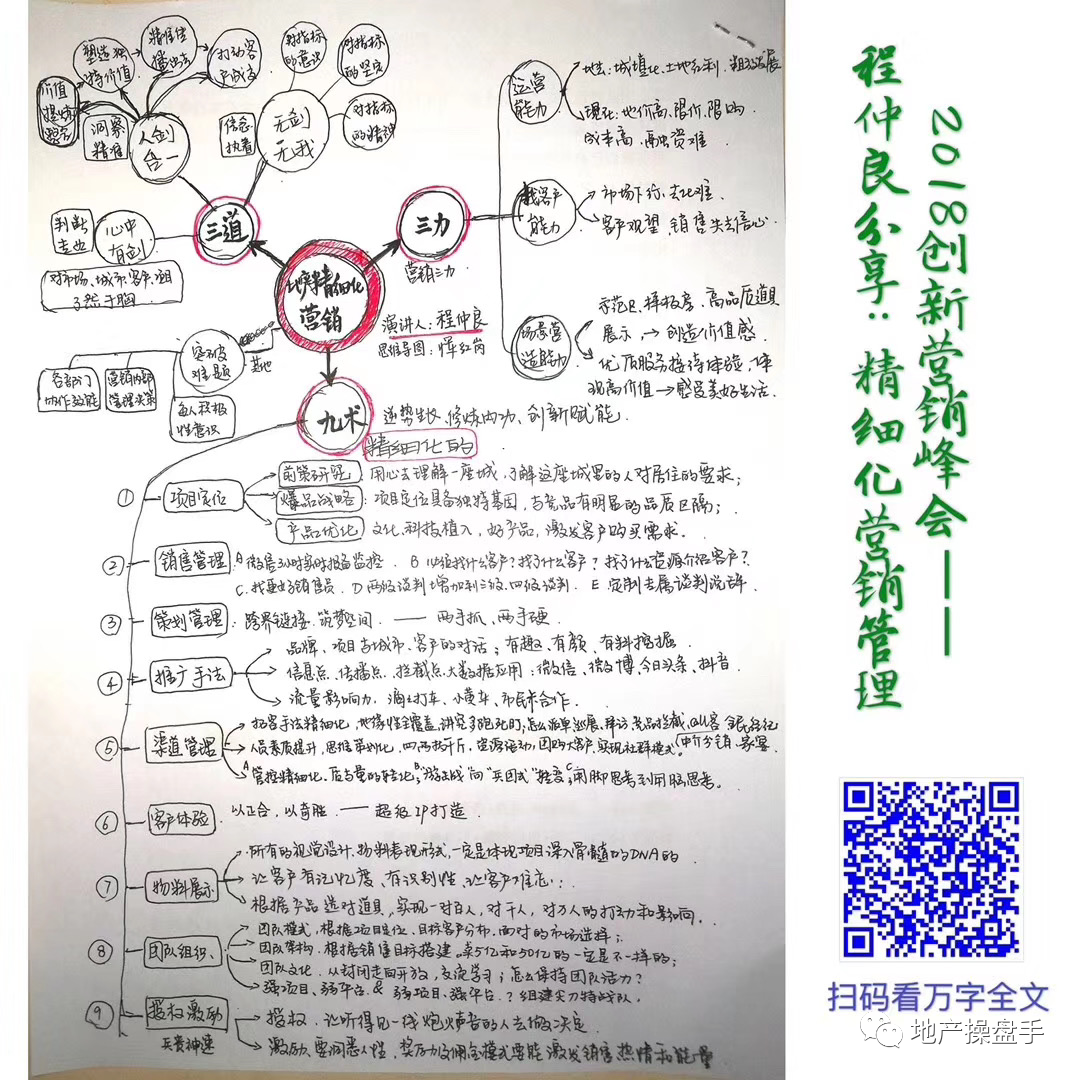 2018创新营销峰会——
程仲良分享：精细化营销管理
地产精细化
营销
演讲人：程仲良
思维导图：恽红岗
三道
人剑
合一
洞察
精准
价值
提炼
塑造独
特价值
精准传
播出去
打动客
户成交
无剑
无我
信念
执着
对指标
的意识
对指标
的坚定
对指标
的精神
心中
有剑
判断
走也
对市场、城市、客户、项目
了然于胸
突破
难题
基地
各部门
协作效能
营销内部
管理决策
每人积极
性意识
三力
营销三力
运营
能力
过去：城镇化、土地红利、粗放发展
现在：地价高、限价、限购
成本高、融资难
找客户
能力
市场下行、去化难
客户观望、销售失去信心
场景营
造能力
示范区、样板房、高品质道具
展示，→创造价值感
优质服务接待体验，体
现高价值→感受美好生活
九术
逆势生长、修炼内功、创新赋能
精细化的
① 项目定位
前策研究：用心去理解一座城，了解这座城里的人对居住的要求；
爆品战略：项目定位具备独特基因，与竞品有明显的品质区隔；
产品优化：文化、科技植入，好产品，激发客户购买需求。
② 销售管理 A 销售3小时实时报备监控. B 小组找什么客户？找了什么客户？找了什么资源介绍客户？
C. 找更好销售员. D 两级谈判增加到三级、四级谈判. E 定制专属谈判说辞
③ 策划管理：跨界链接、筑梦空间. —— 两手抓，两手硬
④ 推广手法
品牌、项目与城市、客户的对话；有趣、有颜、有料挖掘
信息点、传播点、拦截点、大数据应用：微信、微博、今日头条、抖音
流量影响力，滴滴打车、小黄车、市民卡合作
⑤ 渠道管理
拓客手法精细化，地缘性全覆盖，讲究多跑死时；怎么派单、巡展、拜访、竞品拦截，call客
人员素质提升，思维策划化，四两拨千斤，资源活动，团购大客户，实现社群模式。中介分销
A 管控精细化. 质与量的转化；B “游击战”向“兵团式”转变；C 用脚思考到用脑思考。
⑥ 客户体验
以正合，以奇胜. —— 超级IP打造
⑦ 物料展示
所有的视觉设计、物料表现形式，一定是体现项目深入骨髓的DNA的
让客户有记忆度、有识别性，让客户难忘；
根据产品选对道具，实现一对百人，对千人，对万人的打动和影响.
⑧ 团队组织、
团队模式，根据项目定位、目标客户分布，面对的市场选择；
团队架构. 根据销售目标搭建，卖5亿和50亿的一定是不一样的；
团队文化，从封闭走向开放，交流学习；怎么保持团队活力？
强项目、弱平台 & 弱项目、强平台.？组建尖刀特战队.
⑨ 授权激励
兵贵神速
授权. 让听得见一线炮火声音的人去做决定
激励、要洞悉人性，奖励及佣金模式要能激发销售热情和能量
扫码看万字全文
地产操盘手